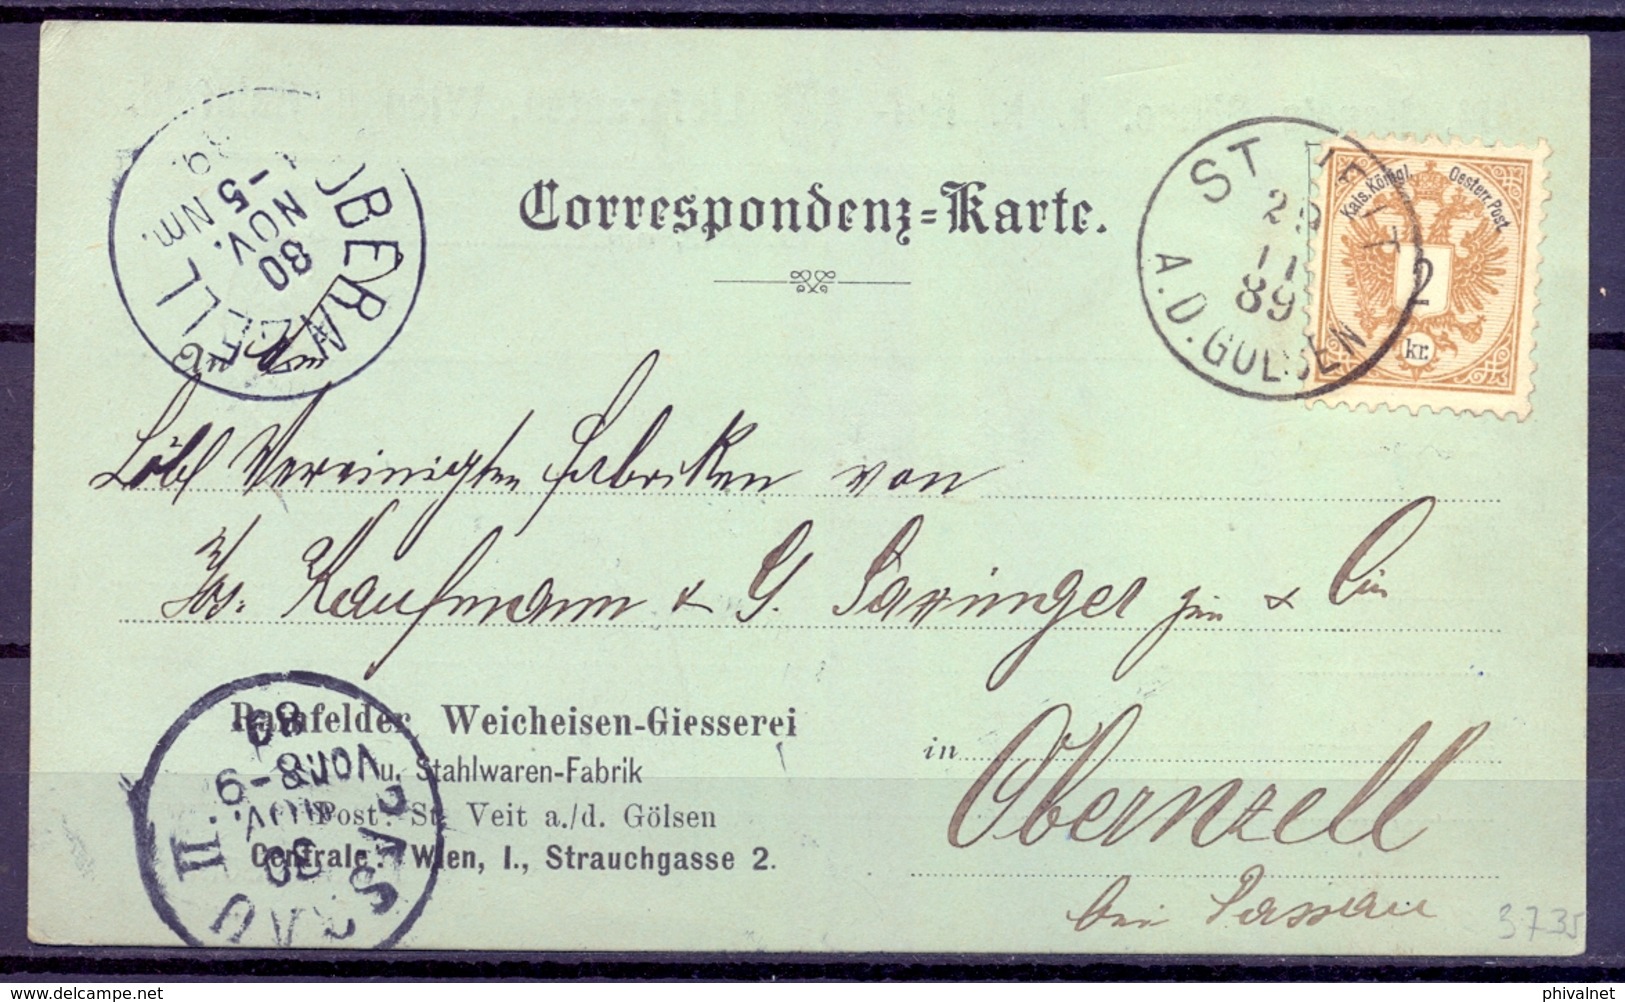 Correspondenz=Karte.
ST. VEIT
29
11
89
A.D. GÖLSEN
Kais. Königl. Oesterr. Post
2
kr.
OBERNZELL
30
NOV.
5 Nm.
An
Löbl Vereinigten Fabriken von
Jos. Kaufmann & G. Saxinger jun &
Rainfelder Weicheisen-Giesserei
u. Stahlwaren-Fabrik
Post: St. Veit a./d. Gölsen
Centrale: Wien, I., Strauchgasse 2.
in Obernzell
bei Passau
PASSAU II.
30
NOV.
VOR 8-9
89
3735
delcampe.net
phivalnet